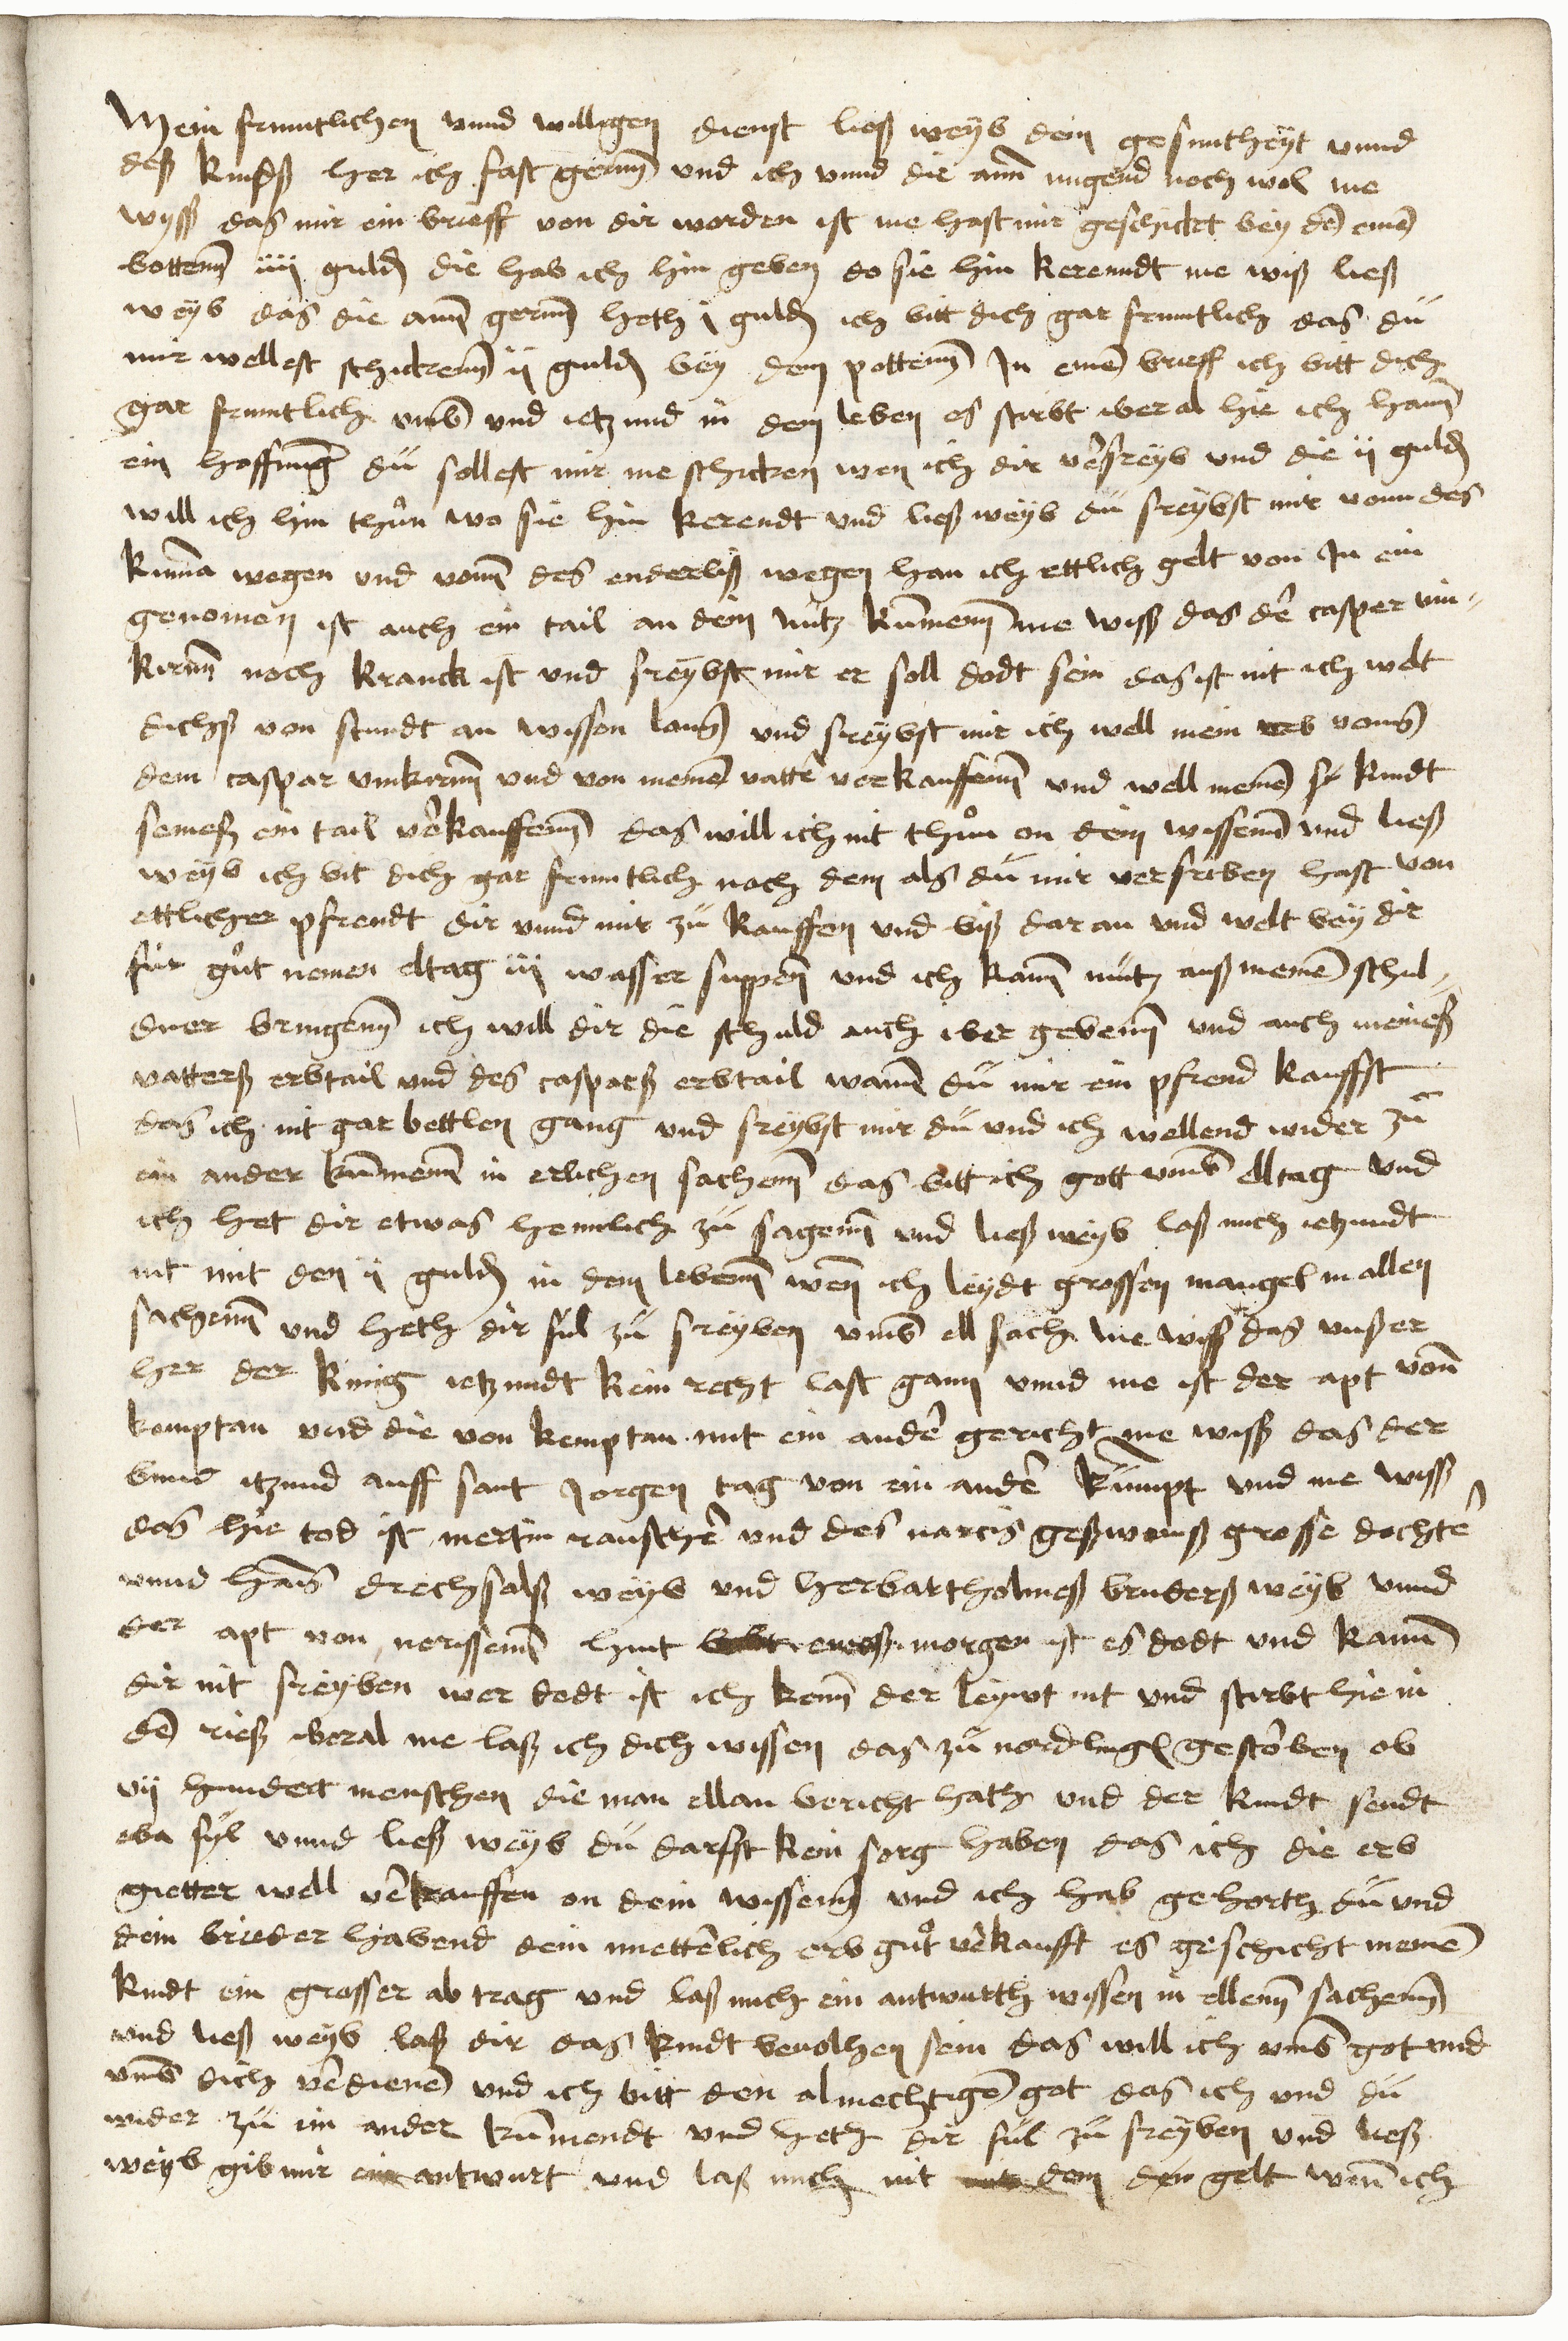 Mein fruntlichen vnnd willigen dienst ließ weyb dein gesuntheyt vnnd
deß kindß her ich fast gernn und ich vnnd die amm mugend noch wol me
wyß das mir ein brieff von dir worden ist me hast mir geschickt bey dem einen
bottenn iiii guldn die hab ich hin geben do sie hin kerenndt me wiß ließ
weyb das die amm gernn heth i guldn ich bitt dich gar fruntlich das dü
mir wellest schickenn ii guldn bey dem pottenn In einem brieff ich bitt dich
gar fruntlich vmb und ietzund in dem leben es stirbt iberal hie ich hann
ein hoffnung dü sollest mir me schicken wen ich dir verfreyb und die ii guldn
will ich hin thůn wo sie hin kerendt und ließ weyb dü freybst mir vonn des
kunna wegen und vonn des enderliß wegen han ich ettlich gelt von In ein
genomen ist auch ein tail an dein nutz kummenn me wiß das der casper vin-
kirnn noch kranck ist und freybst mir er soll dodt sein das ist nit ich welt
dichß von stundt an wissen lonn und freybst mir ich well mein erb vonn
dem caspar vinkirnn und von meinem vatter verkauffenn und well meinem kindt
seineß ein tail verkauffenn das will ich nit thůn on dein wissenn und ließ
weyb ich bit dich gar fruntlich noch dem als dü mir verfriben hast von
ettlicher pfrendt dir vnnd mir zü kauffen und biß dar an und welt bey dir
für gůt nemen eltag iii wasser suppen und ich kann nütz auß meinen schul-
dner bringenn ich will dir die schuld auch iber gebenn und auch meineß
vatterß erbtail und des casparß erbtail wann dü mir ein pfrend kauffst
das ich nit gar bettlen gang und freybst mir dü und ich wellend wider zü
ein ander kummenn in erlichen sachenn das bitt ich gott vmb elltag und
ich het dir etwas hemlich zü sagenn und ließ weyb laß mich ietzundt
nit mit den ii guldn in dem lebenn wen ich leydt grossen mangel in allen
sachenn und heth dir fül zü freyben vmb ell sach me wiß das vnßer
her der kinig ietzundt kein recht last gann vnnd me ist der apt vonn
kemptan und die von kemptan mit ein ander gericht me wiß das der
bund itzund auff sant Jorgen tag von ein ander kümpt und me wiß
das hie tod ist mertin rauscher und des narcis geßwenß grosse dochter
vnnd hans drechsalß weyb und her bartholmeß bruderß weyb vnnd
der apt von nerissenn hint morgen ist es dodt und kann
dir nit freyben wer dodt ist ich kenn der leywt nit und stirbt hie in
dem rieß iberal me laß ich dich wissen das zü nordlingen gestorben ob
vii hundert menschen die man ellan bericht hath und der kindt sendt
eba fyl vnnd ließ weyb dü darffst kein sorg haben das ich die erb
gietter well verkauffen on dein wissenn und ich hab gehorth dü und
dein brieder habend dein muetterlich erb gůt verkaufft es geschicht meinem
kindt ein grosser ab trag und laß mich ein antwurth wissen in ellenn sachenn
und ließ weyb laß dir das kindt bevolhen sein das will ich vmb got und
vmb dich verdienen und ich bitt den almechtigen got das ich und dü
wider zü ein ander kummendt und heth dir fül zü freyben und ließ
weyb gib mir ein antwurt und laß mich nit dem den gelt wenn ich